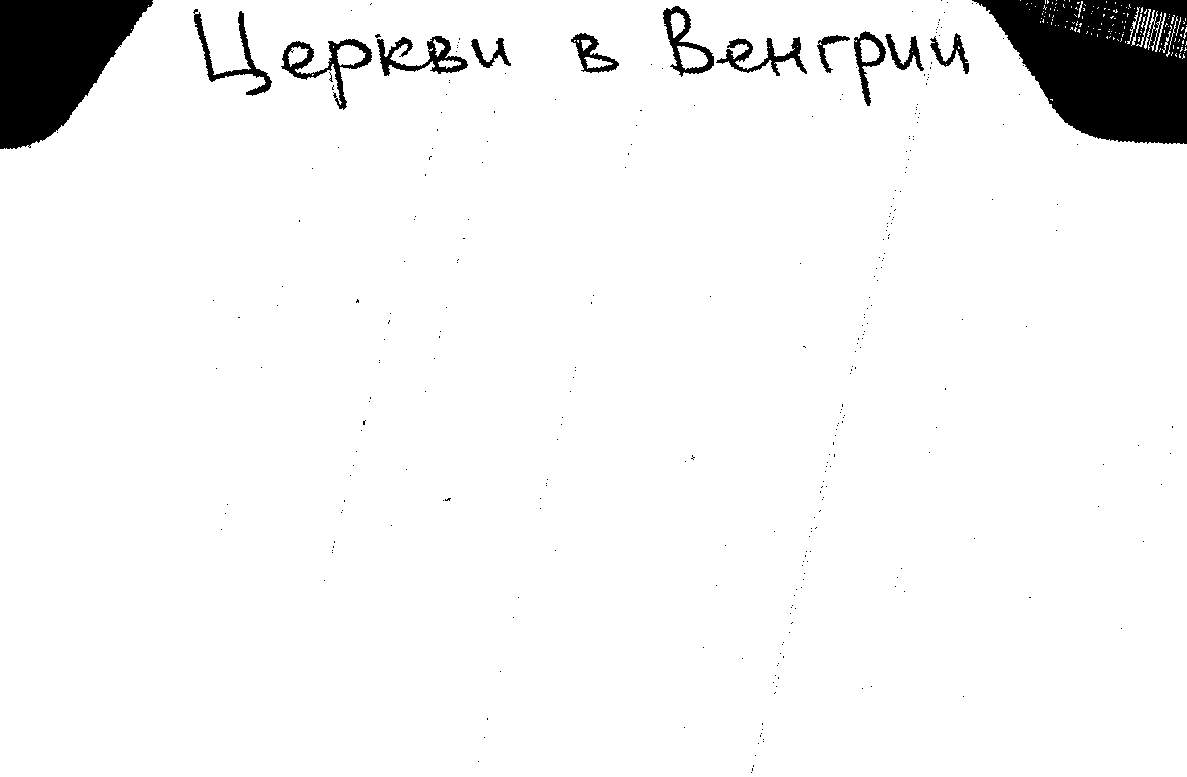 Церкви в Венгрии